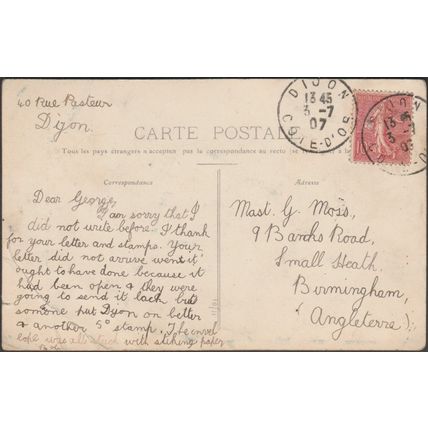 40 Rue Pasteur
Dijon.
CARTE POSTALE
Tous les pays étrangers n'acceptent pas la correspondance au recto (se
Correspondance
Dear George,
I am sorry that I
did not write before. I thank
for your letter and stamps. Your
letter did not arrive went it
ought to have done because it
had been open & they were
going to send it back but
somone put Dijon on letter
& another 5c stamp. The envel
lope was all stuck with stiking paper
Adresse
Mast. G. Moss,
9 Banks Road,
Small Heath.
Birmingham,
(Angleterre)
DIJON
13 45
3 -7
07
COTE-D'OR